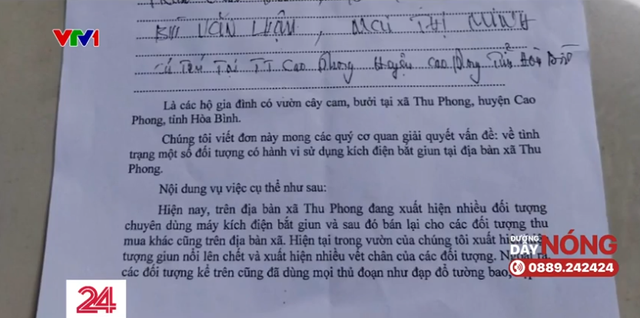 VTV1
BÙI VĂN LUẬN, MAI THỊ MINH
TT Cao Phong Huyện Cao Phong Tỉnh Hòa Bình
Là các hộ gia đình có vườn cây cam, bưởi tại xã Thu Phong, huyện Cao
Phong, tỉnh Hòa Bình.
Chúng tôi viết đơn này mong các quý cơ quan giải quyết vấn đề: về tình
trạng một số đối tượng có hành vi sử dụng kích điện bắt giun tại địa bàn xã Thu
Phong.
Nội dung vụ việc cụ thể như sau:
Hiện nay, trên địa bàn xã Thu Phong đang xuất hiện nhiều đối tượng
chuyên dùng máy kích điện bắt giun và sau đó bán lại cho các đối tượng thu
mua khác cũng trên địa bàn xã. Hiện tại trong vườn của chúng tôi xuất
tượng giun nổi lên chết và xuất hiện nhiều vết chân của các đối tượng.
các đối tượng kể trên cũng đã dùng mọi thủ đoạn như đạp đổ tường bao,
ĐƯỜNG
DÂY
NÓNG
0889.242424
24